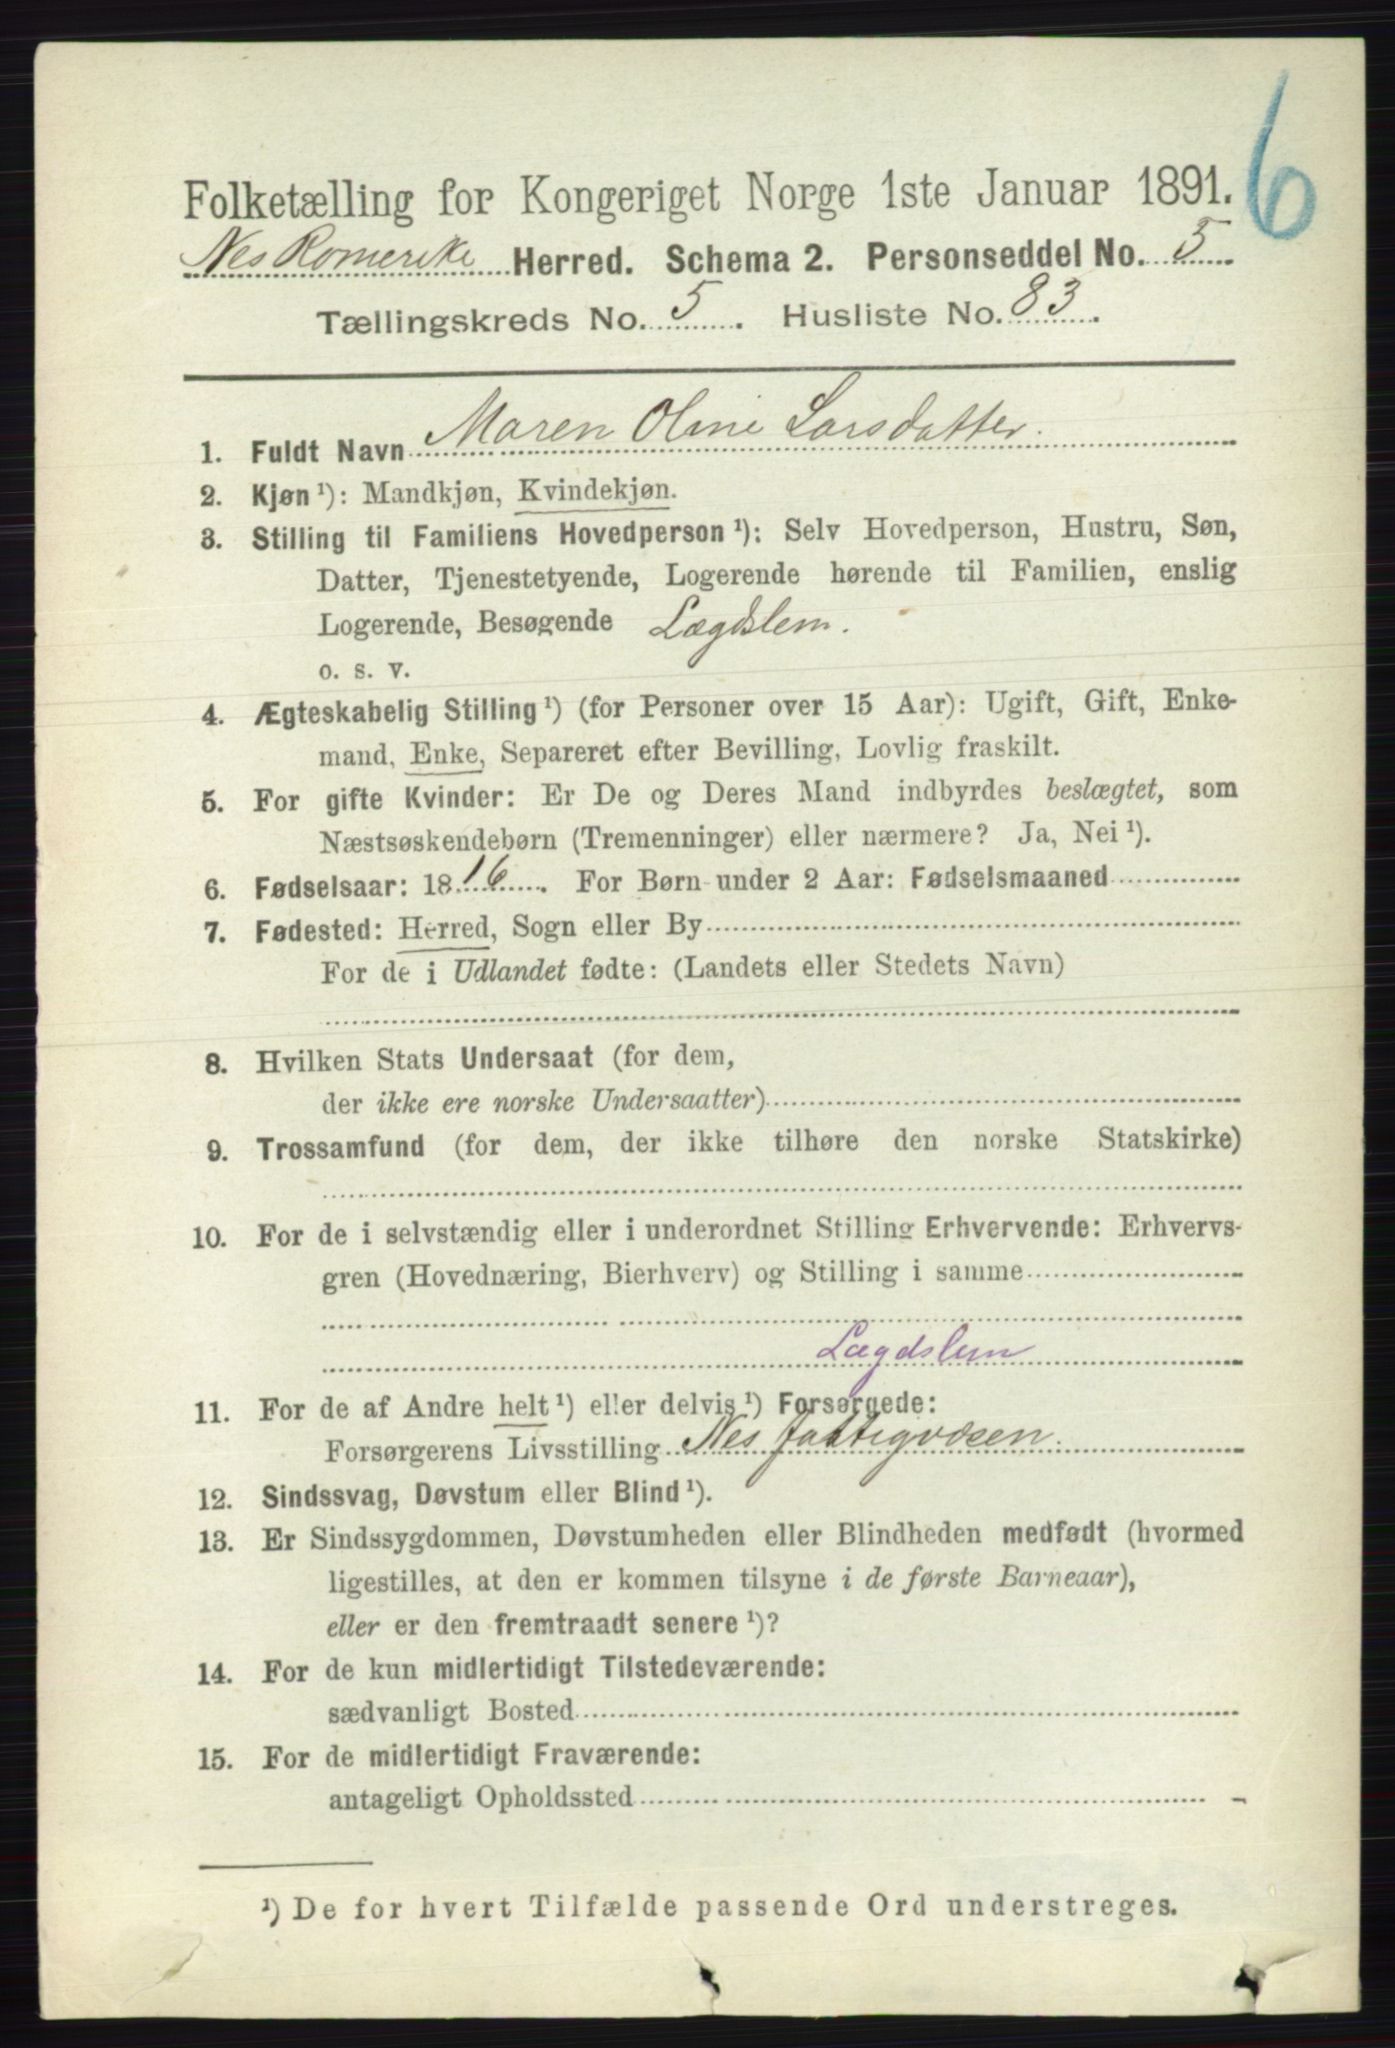 6
Folketælling for Kongeriget Norge 1ste Januar 1891.
Nes Romerike Herred. Schema 2. Personseddel No. 5
Tællingskreds No. 5. Husliste No. 83.
1. Fuldt Navn Maren Oline Larsdatter.
2. Kjøn ¹): Mandkjøn, Kvindekjøn.
3. Stilling til Familiens Hovedperson ¹): Selv Hovedperson, Hustru, Søn,
Datter, Tjenestetyende, Logerende hørende til Familien, enslig
Logerende, Besøgende Lægdslem.
o. s. v.
4. Ægteskabelig Stilling ¹) (for Personer over 15 Aar): Ugift, Gift, Enke-
mand, Enke, Separeret efter Bevilling, Lovlig fraskilt.
5. For gifte Kvinder: Er De og Deres Mand indbyrdes beslægtet, som
Næstsøskendebørn (Tremenninger) eller nærmere? Ja, Nei ¹).
6. Fødselsaar: 1816. For Børn under 2 Aar: Fødselsmaaned
7. Fødested: Herred, Sogn eller By
For de i Udlandet fødte: (Landets eller Stedets Navn)
8. Hvilken Stats Undersaat (for dem,
der ikke ere norske Undersaatter)
9. Trossamfund (for dem, der ikke tilhøre den norske Statskirke)
10. For de i selvstændig eller i underordnet Stilling Erhvervende: Erhvervs-
gren (Hovednæring, Bierhverv) og Stilling i samme
Lægdslem
11. For de af Andre helt ¹) eller delvis ¹) Forsørgede:
Forsørgerens Livsstilling Nes fattigvæsen.
12. Sindssvag, Døvstum eller Blind ¹).
13. Er Sindssygdommen, Døvstumheden eller Blindheden medfødt (hvormed
ligestilles, at den er kommen tilsyne i de første Barneaar),
eller er den fremtraadt senere ¹)?
14. For de kun midlertidigt Tilstedeværende:
sædvanligt Bosted
15. For de midlertidigt Fraværende:
antageligt Opholdssted
¹) De for hvert Tilfælde passende Ord understreges.